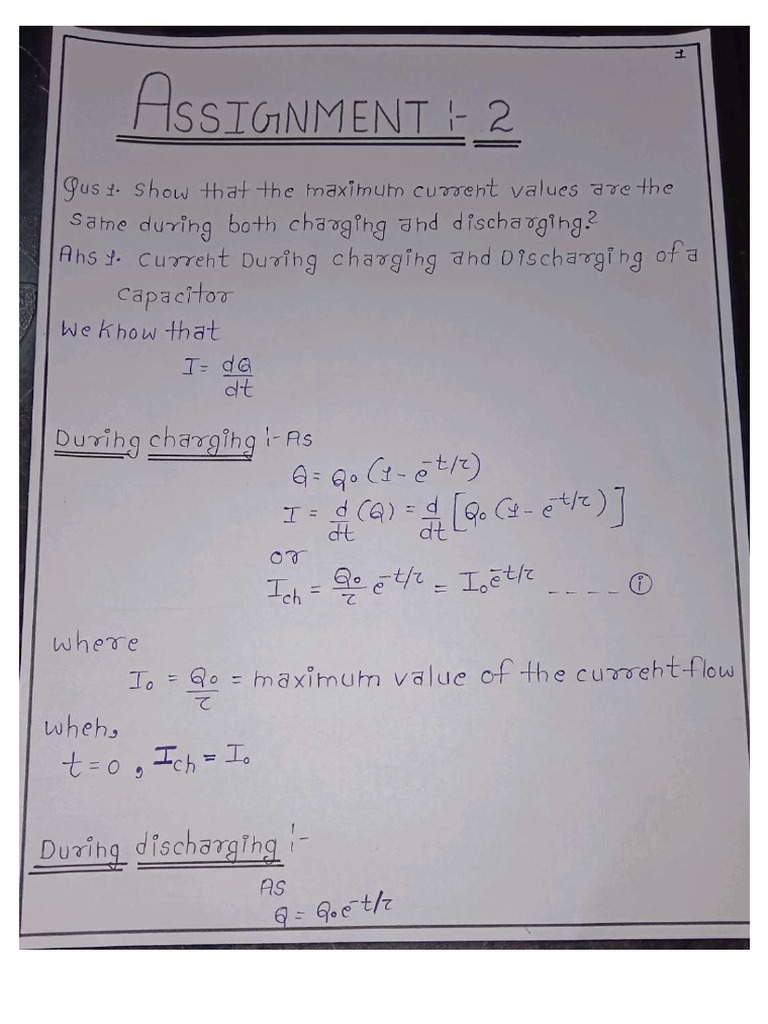 1
ASSIGNMENT :- 2
Qus 1. Show that the maximum current values are the
same during both charging and discharging.?
Ans 1. Current During charging and Discharging of a
capacitor
We know that
I = dQ/dt
During charging :- As
Q = Q₀ (1 - e^-t/τ)
I = d/dt (Q) = d/dt [Q₀ (1 - e^-t/τ)]
or
I_ch = Q₀/τ e^-t/τ = I₀e^-t/τ ---- ⓘ
where
I₀ = Q₀/τ = maximum value of the current flow
when,
t = 0 , I_ch = I₀
During discharging :-
As
Q = Q₀e^-t/τ